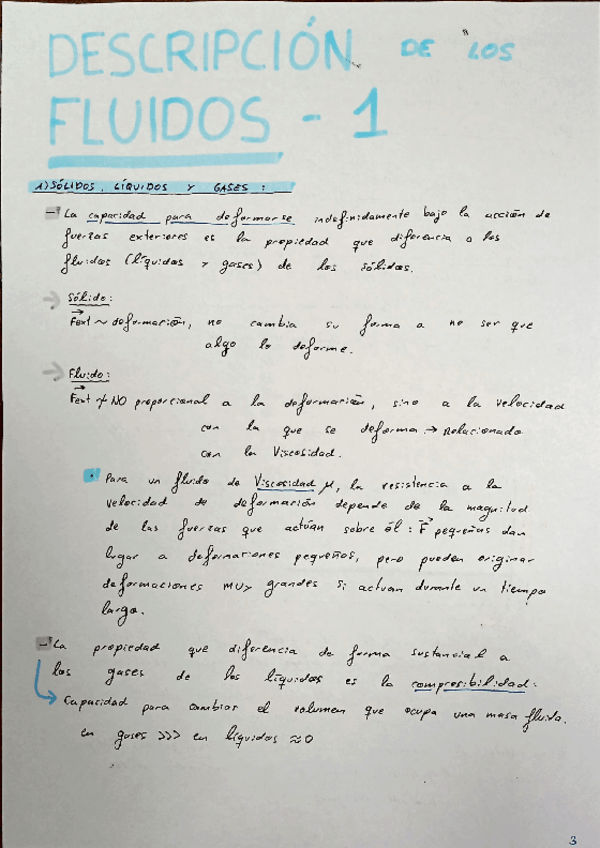 DESCRIPCIÓN DE LOS
FLUIDOS - 1
1) SÓLIDOS, LÍQUIDOS Y GASES:
- La capacidad para deformarse indefinidamente bajo la acción de
fuerzas exteriores es la propiedad que diferencia a los
fluidos (líquidos y gases) de los sólidos.
→ Sólido:
Fext ~ deformación, no cambia su forma a no ser que
algo lo deforme.
→ Fluido:
Fext ≁ NO proporcional a la deformación, sino a la velocidad
con la que se deforma → Relacionado
con la Viscosidad.
• Para un fluido de Viscosidad μ, la resistencia a la
velocidad de deformación depende de la magnitud
de las fuerzas que actúan sobre él: F pequeñas dan
lugar a deformaciones pequeñas, pero pueden originar
deformaciones MUY grandes si actuan durante un tiempo
largo.
- La propiedad que diferencia de forma sustancial a
los gases de los líquidos es la compresibilidad:
Capacidad para cambiar el volumen que ocupa una masa fluida.
en gases >>> en líquidos ≈ 0
3